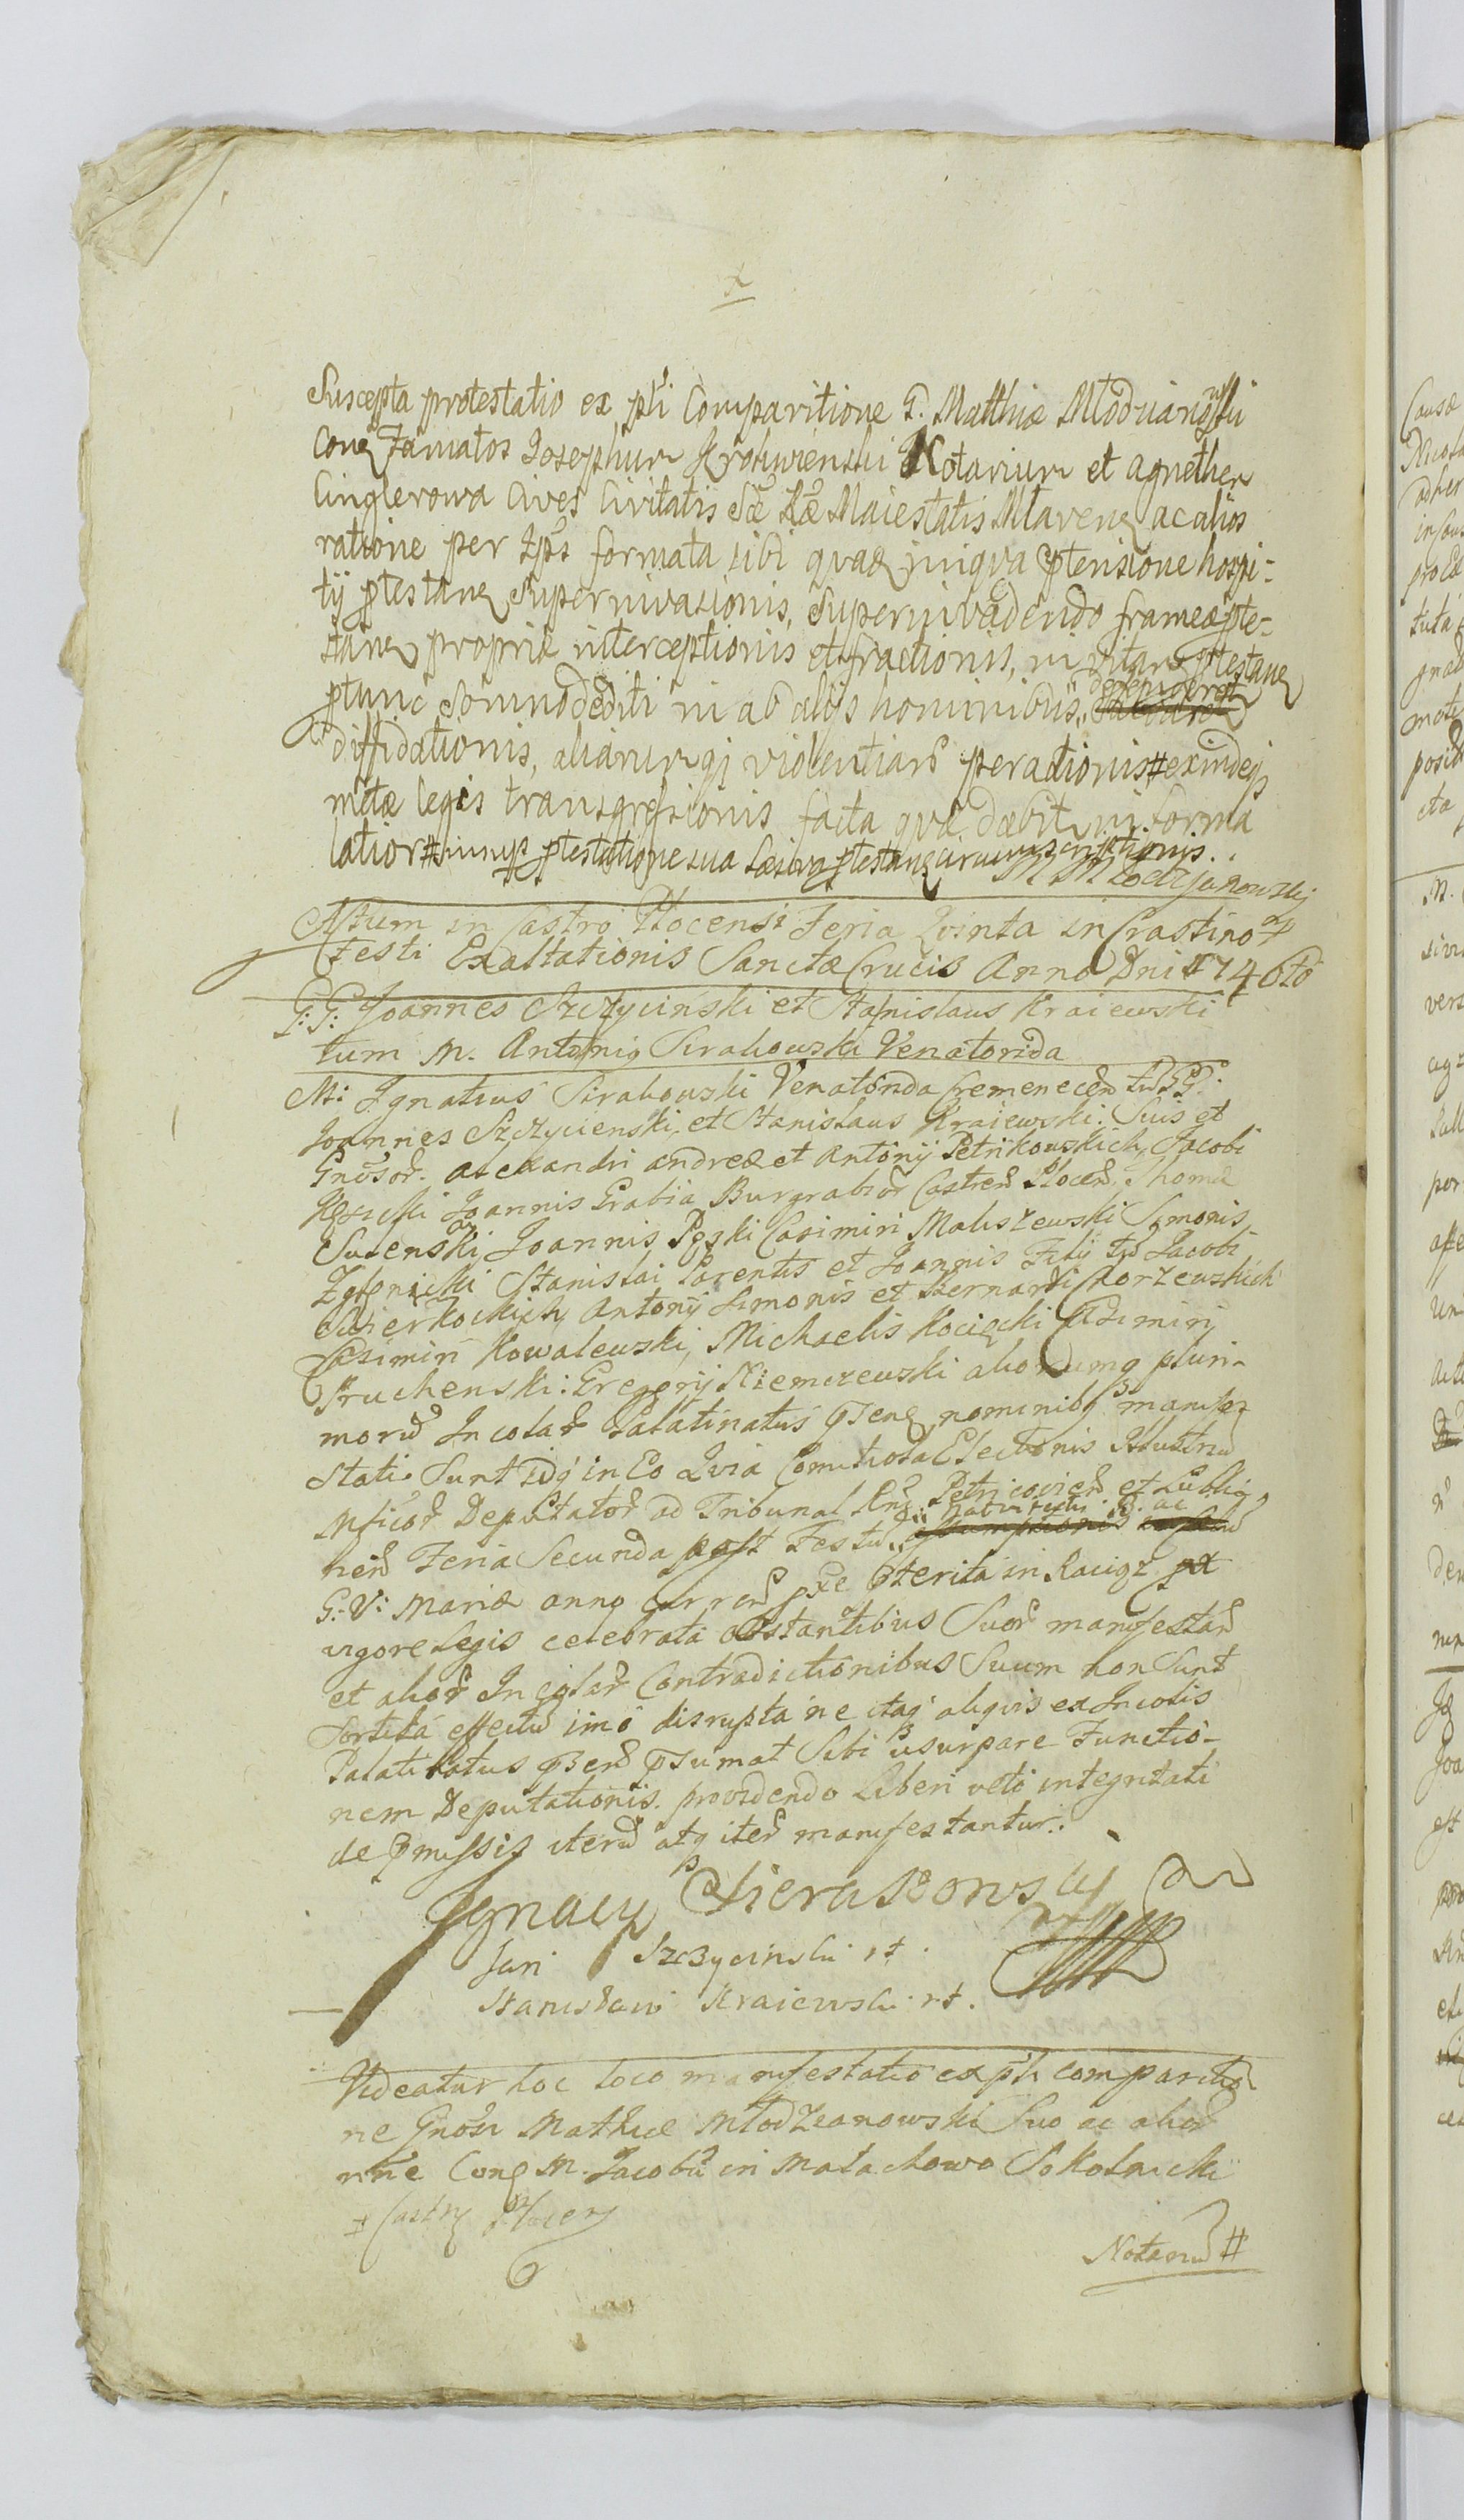 Suscepta protestatio ex pti Comparitione G. Matthiæ Młodzianowski
Conq Famatos Josephum Krokwienski Notarium et Agnethem
Cinglerowa Cives Civitatis Sæ Ræ Maiestatis Mlavenq ac alios
ratione per Ipsos formata sibi quad iniqva ptensione hospi-
tij ptestanq Superinvasionis, Superinvadendo frameæ pte-
stanq propriæ interceptionis et fractionis, in vitam ptestanq
ptunc Somno dediti ni ab alijs hominibus,
diffidationis, aliarumqj violentiarũ peractionis # exindeqj
metæ legis transgressionis facta quæ dabitur in forma
latiori # ptestatione sua ptestanq circumscriptionis.
M Młodzianowskj
Actum in Castro Plocensi Feria Quinta in Crastino
Festi Exaltationis Sanctæ Crucis Anno Dni 1746to
G: G: Joannes Szczycinski et Stanislaus Kraiewski
tum M. Antonig Sirakowski Venatorida
M: Ignatius Sirakowski Venatorida Cremenecen tũ G G:
Joannes Szczycienski et Stanislaus Kraiewski: Suis et
Gnosor. Alexandri Andreæ et Antonij Petrikowskich, Jacobi
Joannis Grabia Burgrabior Castren Plocen, Thomæ
Suzenski Joannis Pęski Casimiri Maliszewski Simonis
Zglenicki Stanislai Parentis et Joannis Filij tũ Jacobi
Swierkockich Antonij Simonis et Bernardi Chorzewskich
Casimiri Kowalewski, Michaelis Kocięcki Casimiri
Pruchenski: Gregorij Niemczewski aliorumq pluri-
morũ Incolar Palatinatus pSenq nominibq manifes
stati Sunt idq in Eo Quia Comitiola Electionis Illustriũ
Mficor Deputator ad Tribunal Rnq Petricovien et Lubli
nen Feria Secunda post Festũ Nativitatis B. ac
G: V: Mariæ anno curren pxe pterita in Raciąz
vigore Legis celebrata obstantibus Suor manifestan
et alior Incolar Contradictionibus Suum non Sunt
Sortita effectũ imo disrupta ne itaq aliqvis ex Incolis
Palatinatus pSen pSumat Sibi usurpare Functio-
nem Deputationis. providendo Liberi veto integritati
de pmissis iterũ atq iterũ manifestantur.
Ignacy Sierakowsky
Jan Szczycinski rt.
Stanisław Kraiewski rt.
Videatur hoc loco manifestatio ex pti comparitio
ne Gnosi Mathiæ Młodzianowski Suo ac alior
nne Conq M. Jacobũ in Małachowo Sokolnicki
# Castrq Plocen
Notariũ #